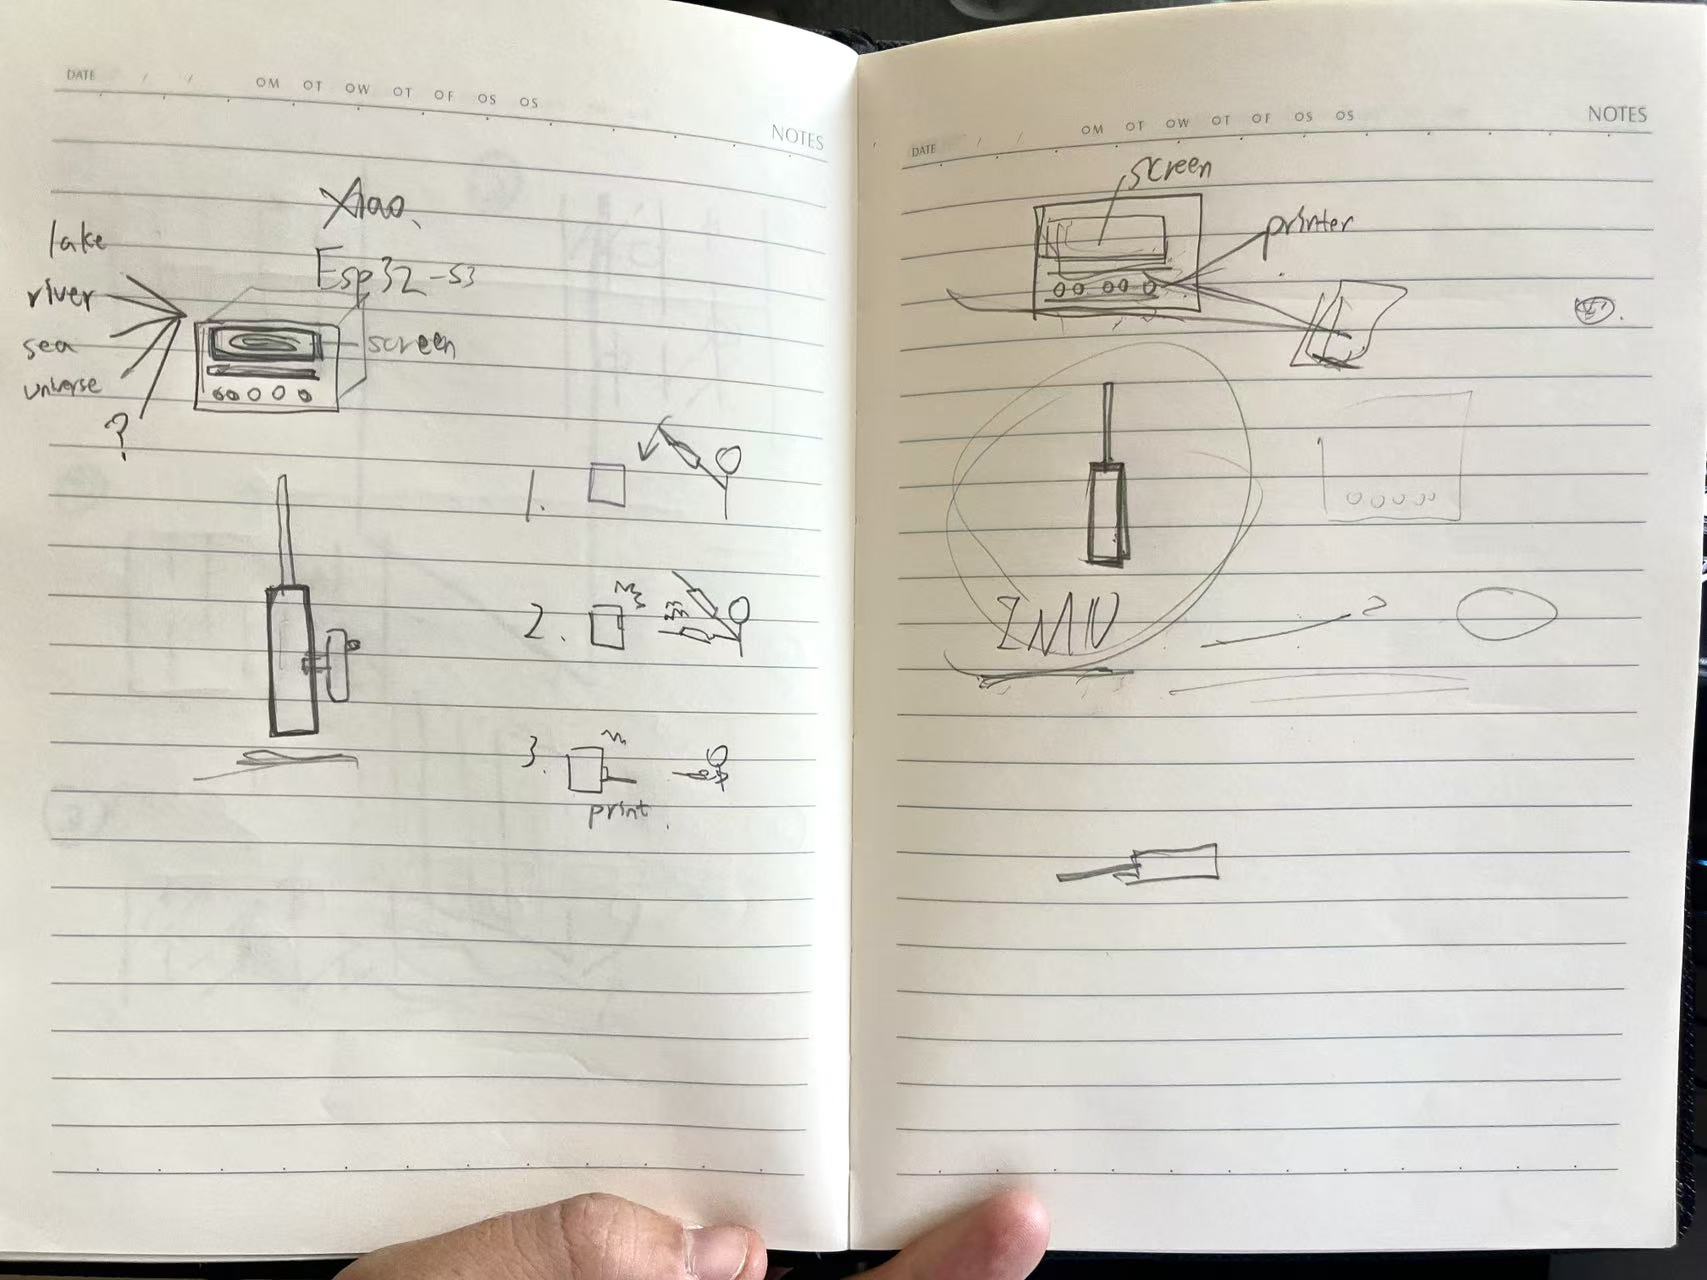 DATE / / OM OT OW OT OF OS OS
NOTES
Xiao.
Esp32-S3
lake
river
sea
universe
?
screen
1.
2.
3.
print.
DATE / / OM OT OW OT OF OS OS
NOTES
screen
printer